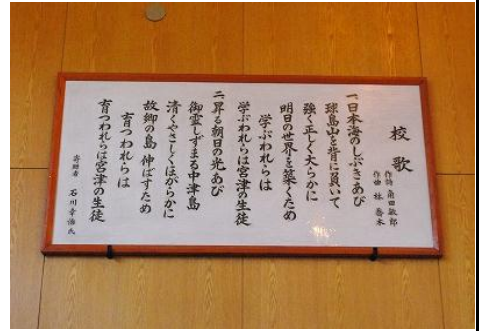 校歌
作詩 角田敏郎
作曲 林喬木
一、日本海のしぶきあび
球島山を背に負いて
強く正しく大らかに
明日の世界を築くため
学ぶわれらは
学ぶわれらは宮津の生徒
二、昇る朝日の光あび
御霊しずまる中津島
清くやさしくほがらかに
故郷の島 伸ばすため
育つわれらは
育つわれらは宮津の生徒
寄贈者 石川幸雄氏